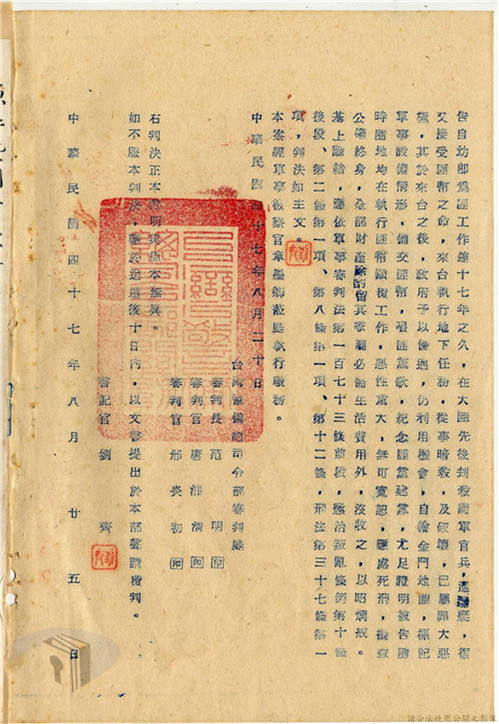 告自幼即為匪工作達十七年之久，在大陸先後刺殺國軍官兵，
又接受匪幫之命，來台執行地下任務，從事暗殺，及破壞，已屬罪大惡
極，其於來台之後，政府予以優遇，仍利用機會，自繪金門地圖，標記
軍事設備情形，備交匪幫，唱匪黨歌，紀念匪黨建黨，尤足證明被告隨
時隨地均在執行匪幫顛覆工作，惡性重大，無可寬恕，應處死刑，褫奪
公權終身，全部財產除酌留其家屬必需生活費用外，沒收之，以昭炯戒。
基上論結，應依軍事審判法第一百七十三條前段，懲治叛亂條例第十條
後段、第二條第一項、第八條第一項、第十二條，刑法第三十七條第一
項，判決如主文。
本案經軍事檢察官 蒞庭執行職務。
中華民國 十七年八月二十日
台灣警備總司令部審判庭
審判長 范 明
審判官
審判官 邢炎初
右判決正本證明與原本無異。
如不服本判決，應於送達後十日內，以文書提出於本部聲請覆判。
書記官 劉
中華民國四十七年八月廿五日